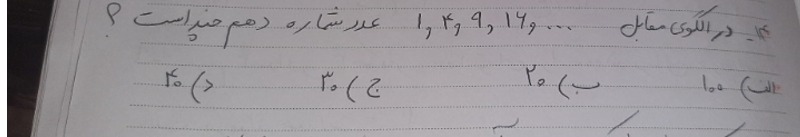 ۱۴ـ در الگوی مقابل ۱, ۴, ۹, ۱۶, ... عدد شماره دهم چند است ؟
الف) ۱۰۰ ب) ۲۰ ج) ۳۰ د) ۴۰